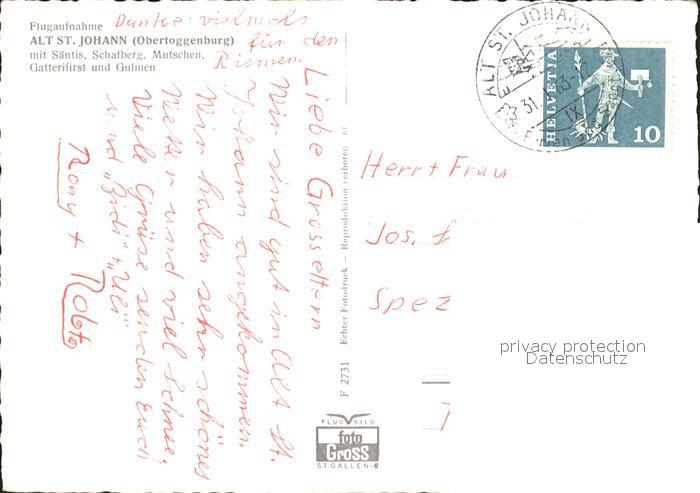 Flugaufnahme
ALT ST. JOHANN (Obertoggenburg)
mit Säntis, Schafberg, Mutschen,
Gatterifirst und Gulmen
Danke vielmals
für den
Riemen.
Liebe Grosseltern
Wir sind gut in Alt St.
Johann angekommen.
Wir haben sehr schönes
Wetter und viel Schnee.
Viele Grüsse senden Euch
und "Didi" + "Ueli"
Rony + Röbeto
F 2731 Echter Fotodruck - Reproduktion verboten
FLUGBILD
foto
Gross
ST. GALLEN
ALT ST. JOHANN
31.
63-
IX
HELVETIA
10
Herr + Frau
Jos.
Spez
privacy protection
Datenschutz